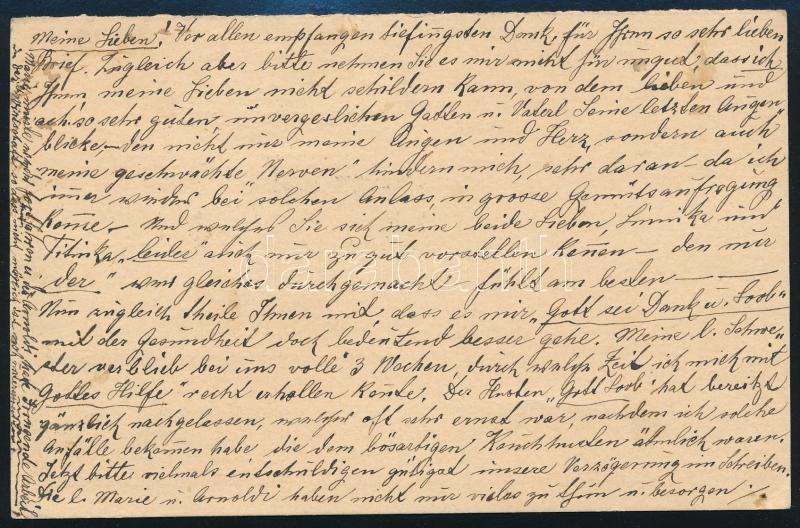 Meine Lieben! Vor allen empfangen tiefinngsten Dank, für Ihren so sehr lieben
Brief. Zugleich aber bitte nehmen Sie es mir nicht für ungut, dass ich
Ihnen meine Lieben nicht schildern kann, von dem lieben und
ach so sehr guten, unvergeslichen Gatten u. Vaterl Seine letzten Augen
blicke – den nicht nur meine Augen und Herz, sondern auch"
meine geschwächte Nerven" hindern mich, sehr daran – da ich
imer wieder bei solchen Anlass, in grosse Gemütsaufregung
kome. – Und welches Sie sich meine beide Lieben, Linnika und
Titinka, "leider" auch nur zu gut vorstellen könen – den nur
der" was gleiches durchgemacht fühlt am besten –
Nun zugleich theile Ihnen mit dass es mir „Gott sei Dank u. Loob"
mit der Gesundheit doch bedeutend besser gehe. Meine l. Schwe"
ster verblieb bei uns volle 3 Wochen, durch welche Zeit, ich mich mit
Gottes Hilfe" recht erhollen konte. Der Husten „Gott Loob" hat bereitzt
gänzlich nachgelassen, welcher oft sehr ernst war, nachdem ich solche
Anfälle bekomen habe die dem bösartigen Keuchhusten ähnlich waren.
Jetzt bitte vielmals entschuldigen gütigst unsere Verzögerung im Schreiben.
Die l. Marie u. Arnoldi haben nicht nur vieles zu thun u. besorgen.
darabanth